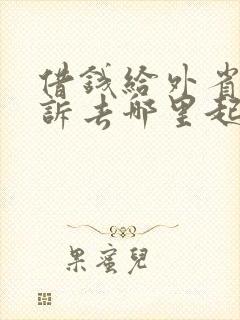 借錢給外省
訴去哪里起
果蜜兒